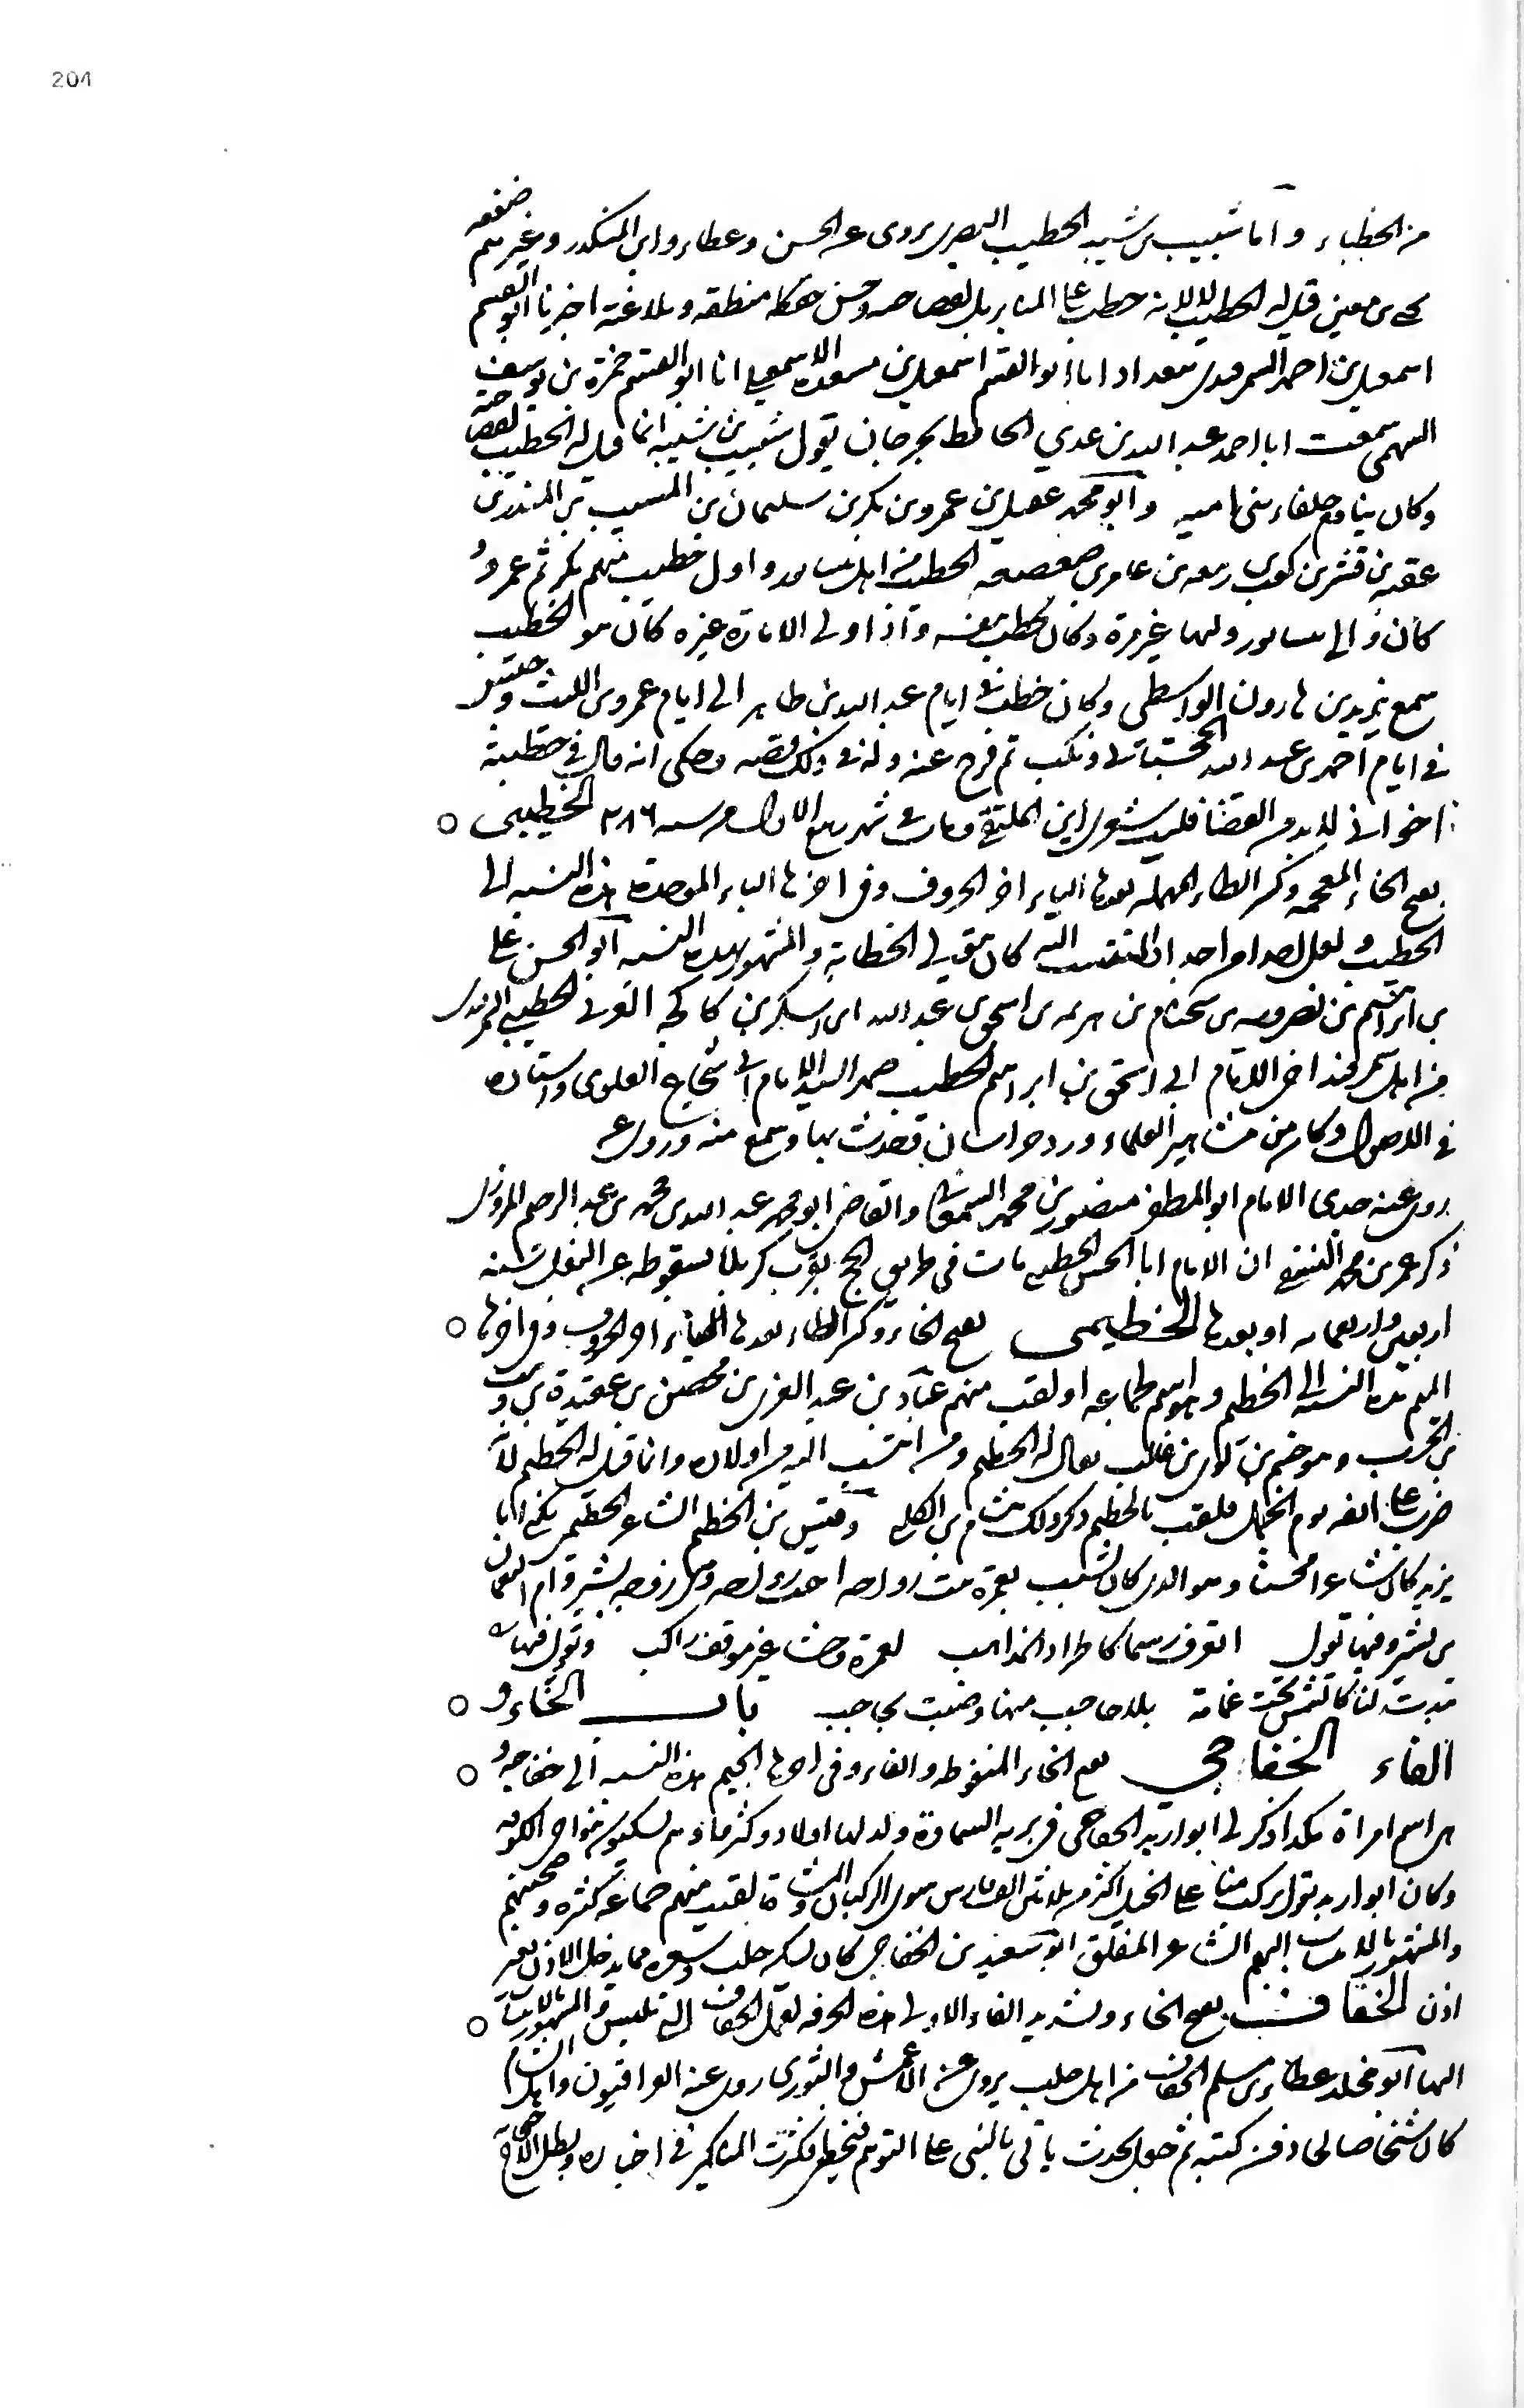 204
من الخطباء واما شبيب بن شيبه الخطيب البصرى يروى عن الحسن وعطاء وابن المنكدر وغيرهم ضعفه
يحيى بن معين قيل له الخطيب لا لانه خطب على المنابر بل لفصاحته وحسن منطقه وبلاغته اخبرنا ابو القسم
اسمعيل بن احمد السمرقندى ببغداد انا ابو القسم اسمعيل بن مسعدة الاسمعيلى انا ابو القسم حمزة بن يوسف
السهمى سمعت ابا احمد عبد الله بن عدي الحافظ بجرجان يقول شبيب بن شيبه انما قيل له الخطيب لفصاحته
وكان ينادم خلفاء بنى امية وابو محمد عقيل بن عمرو بن بكر بن سليمان بن المسيب بن المنذر بن
عقبه بن قشير بن كعب بن ربيعه بن عامر بن صعصعه الخطيب من اهل نيسابور واول خطيب منهم بكر ثم عمرو
كان والى نيسابور وليها غير مرة وكان يخطب بنفسه واذا ولى الامارة غيره كان هو الخطيب
سمع يزيد بن هارون الواسطى وكان خطب فى ايام عبد الله بن طاهر الى ايام عمرو بن الليث وحبس
فى ايام احمد بن عبد الله الخجستانى ونكب ثم فرج عنه وله فى ذلك قصه وحكى انه قال فى خطبته
اخوانى لا بد من القضا فليت شعرى اين الملتقى ومات فى شهر ربيع الاول من سنه ٢٨٦ الخطيبى
بفتح الخاء المعجمه وكسر الطاء المهملة بعدها الياء اخر الحروف وفى اخرها الباء الموحدة هذه النسبه الى
الخطيب ولعل احد اجداد المنتسب اليه كان يتولى الخطابة والمشهور بهذه النسبه ابو الحسن على
بن ابراهيم بن نصرويه بن سختام بن هرثمه بن اسحق بن عبد الله بن اسكر بن كاكجه العربى الخطيبى السمرقندى
من اهل سمرقند اخو الامام ابى اسحق بن ابراهيم الخطيب صهر السيد الامام ابى شجاع العلوى واستاذه
فى الاصول وكان من مشاهير العلماء ورد خراسان وحدث بها وسمع منه وروى عنه
روى عنه جدى الامام ابو المظفر منصور بن محمد السمعانى والقاضى ابو محمد عبد الله بن محمد بن عبد الرحيم المروزى
ذكر عمر بن محمد النسفى ان الامام ابا الحسن الخطيبى مات فى طريق الحج بقرب كربلا بسقوطه عن البغل سنه
اربعين واربعمايه او بعدها الخطيمى بفتح الخاء وكسر الطاء بعدها الياء اخر الحروف وفى اخرها
الميم هذه النسبه الى الخطيم وهو اسم لجماعه او لقب منهم عباد بن عبد العزى بن محصن بن عقيدة بن وهب
بن الحرث وهو جشم بن لوى بن غالب يقال له الخطيم ومن انتسب اليه من اولاده وانما قيل له الخطيم لانه
ضرب على انفه يوم الجمل فلقب بالخطيم ذكر ذلك هشام بن الكلبى وقيس بن الخطيم الشاعر الخطيمى يكنى ابا
يزيد كان شاعرا محسنا وهو الذى كان يشبب بعمرة بنت رواحه اخت عبد الله بن رواحه وهى زوجه بشير وام النعمان
بن بشير وفيها يقول اتعرف رسما كاطراد المذاهب لعمرة وحشا غير موقف راكب ويقول فيها
تبدت لنا كالشمس تحت غمامة بدا حاجب منها وضنت بحاجب باب الخاء و
الفاء الخفاجى بفتح الخاء المنقوطه والفاء وفى اخرها الجيم هذه النسبه الى خفاجه و
هى اسم امراة هكذا ذكر لى ابو ازيد الخفاجى فى بريه السماوة ولد لها اولاد وكثروا وهم يسكنون بنواحى الكوفه
وكان ابو ازيد يقول يركب منا على الخيل اكثر من ثلاثين الف فارس سوى الركبان والمشاة لقيت منهم جماعه كثيره وصحبتهم
والمشهور بالانتساب اليهم الشاعر المفلق ابو سعيد بن الخفاجى كان يسكن حلب وشعره مما يدخل الاذن بغير
اذن الخفاف بفتح الخاء وتشديد الفاء الاولى هذه الحرفه لعمل الخفاف التى تلبس والمشهور بالانتساب
اليها ابو مخلد عطاء بن مسلم الخفاف من اهل حلب يروى عن الاعمش والثورى روى عنه العراقيون واهل الشام
كان شيخا صالحا دفن كتبه ثم جعل يحدث ياتى بالشى على التوهم فيخطى فكثرت المناكير فى اخباره وبطل الاحتجاج